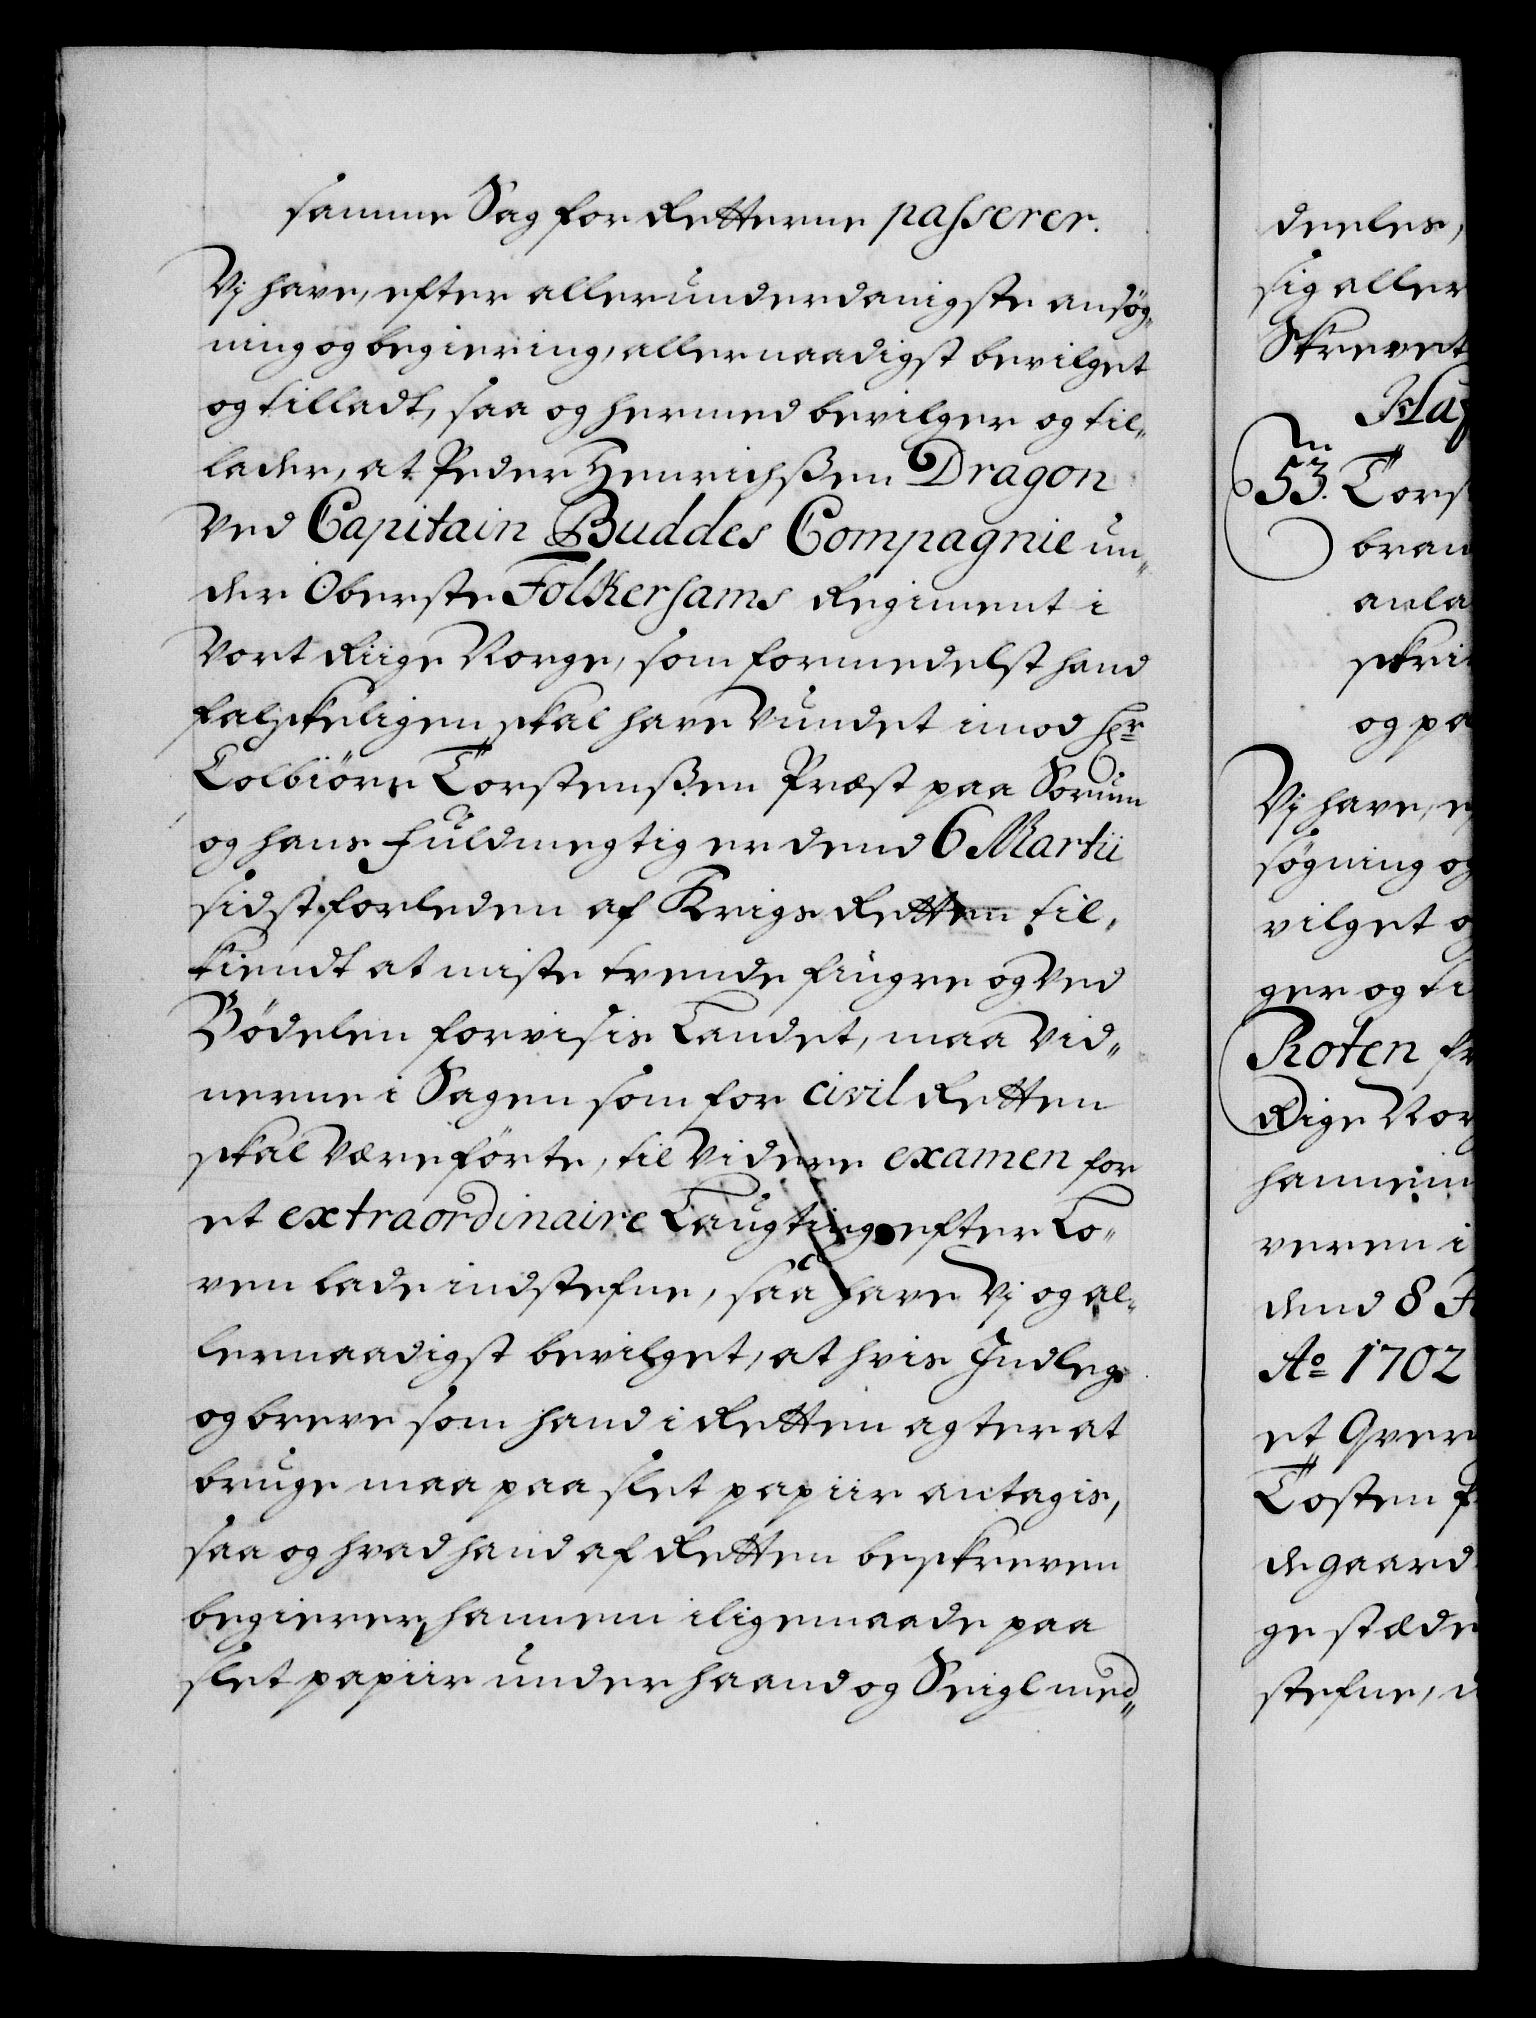 samme Sag for Retterne passerer.
Vj have, efter allerunderdanigste ansøg„
ning og begiering, allernaadigst bevilget
og tilladt, saa og hermed bevilger og til„
lader, at Peder Henrichßen Dragon
ved Capitain Buddes Compagnie un„
der Oberste Folkersams Regiment i
Vort Riige Norge, som formedelst hand
falskeligen skal have vundet imod Hr
Tolbiørn Torstenßen Præst paa Sorum
og hans fuldmegtig er dend 6 Martii
sidst forleden af Krigs Retten til„
kiendt at miste trende fingre og ved
Bödelen forvisis Landet, maa Vid„
nerne i Sagen som for civil Retten
skal være förte, til videre examen for
et extraordinaire Laugting efter Lo„
ven lade indstefne, saa have Vj og al„
lernaadigst bevilget, at hvis Indleg
og breve som hand i Retten agter at
bruge maa paa slet papiir antagis,
saa og hvad hand af Retten beskreven
begierer, hannem i ligemaade paa
slet papiir under haand og Seigl med„
deeles,
sig aller
Skrevet
53.
bran
anla
skri
og pa
Vj have, e
søgning og
vilget o
ger og ti
Roten fr
Rige Nor
hannem
veren i
dend 8
Ao 1702
et
Tosten
degaard
ge stæde
stefne,